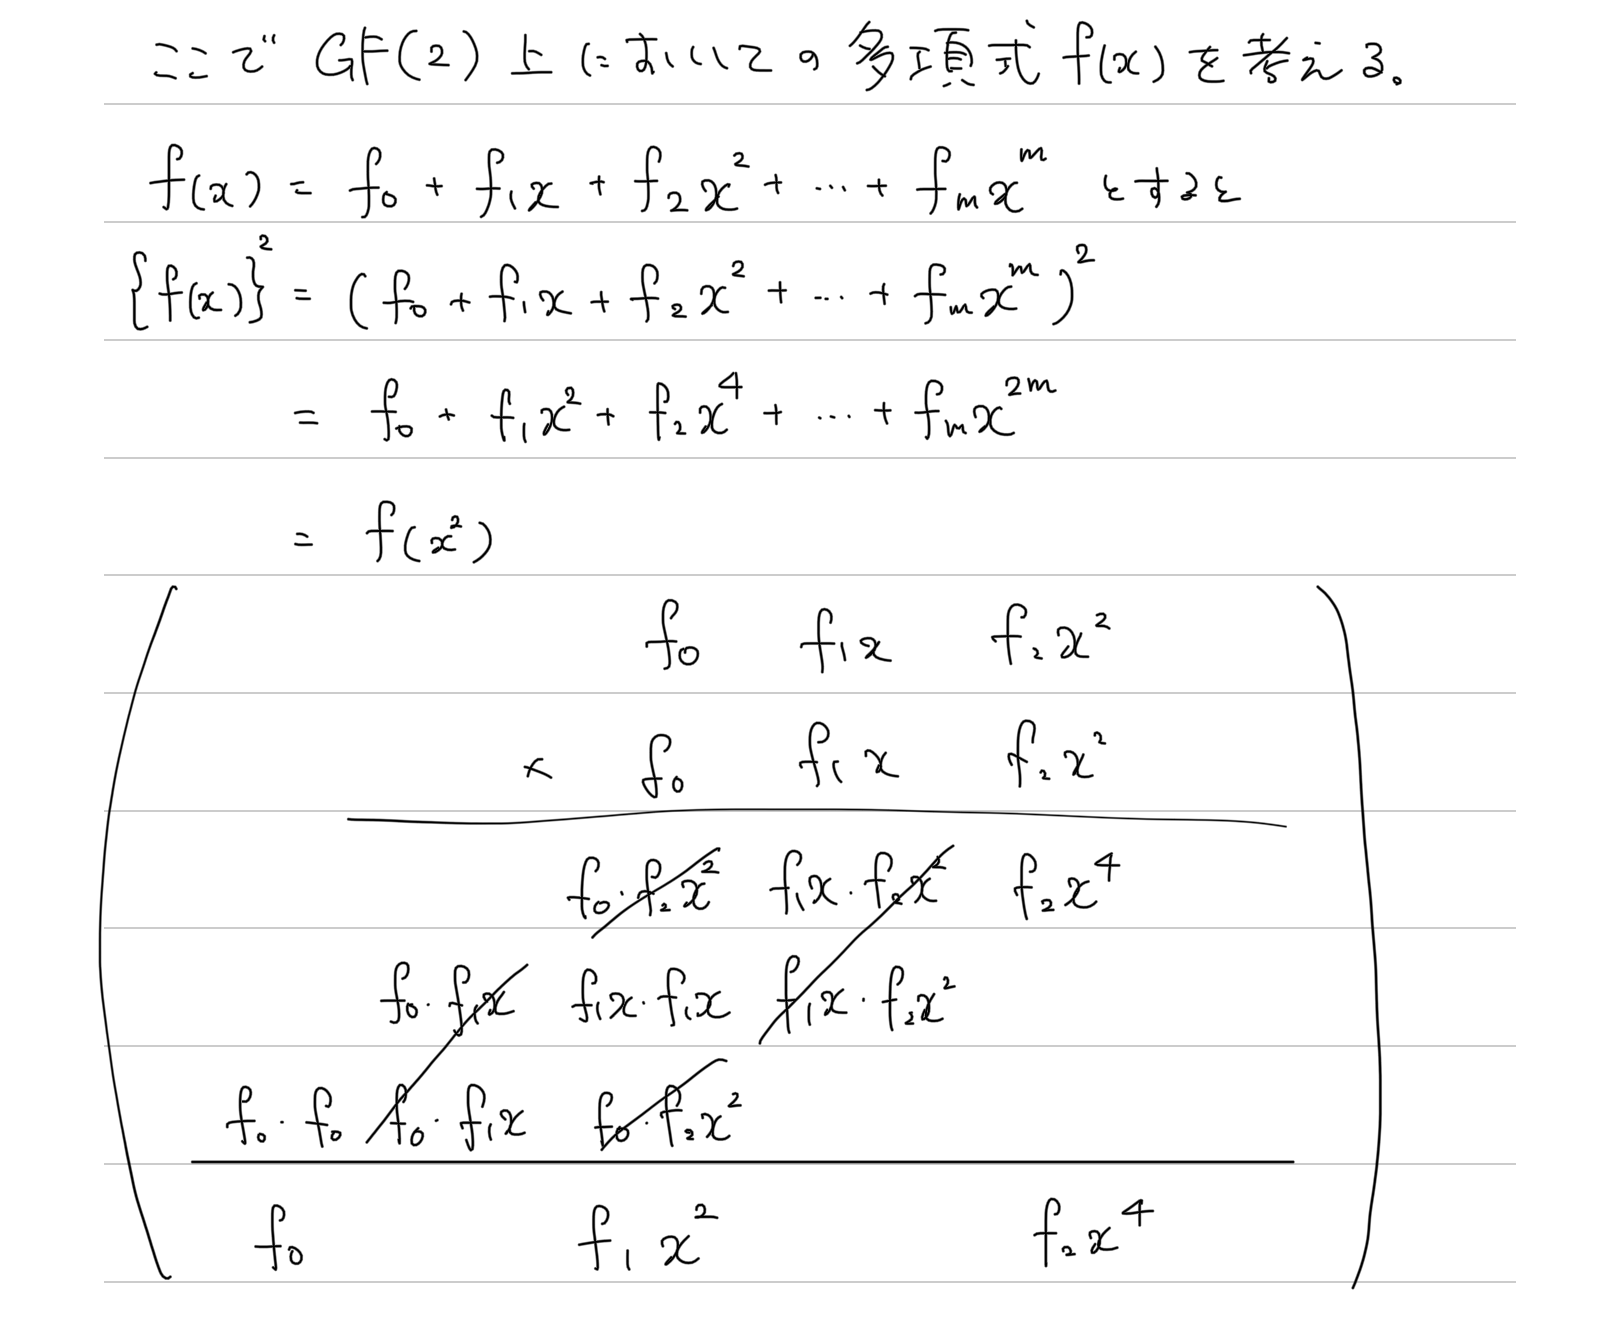 ここで GF(2) 上においての多項式 f(x) を考える。
f(x) = f₀ + f₁x + f₂x² + … + fₘxᵐ とすると
{f(x)}² = (f₀ + f₁x + f₂x² + … + fₘxᵐ)²
= f₀ + f₁x² + f₂x⁴ + … + fₘx²ᵐ
= f(x²)
f₀ f₁x f₂x²
× f₀ f₁x f₂x²
f₀·f₂x² f₁x·f₂x² f₂x⁴
f₀·f₁x f₁x·f₁x f₁x·f₂x²
f₀·f₀ f₀·f₁x f₀·f₂x²
f₀ f₁x² f₂x⁴